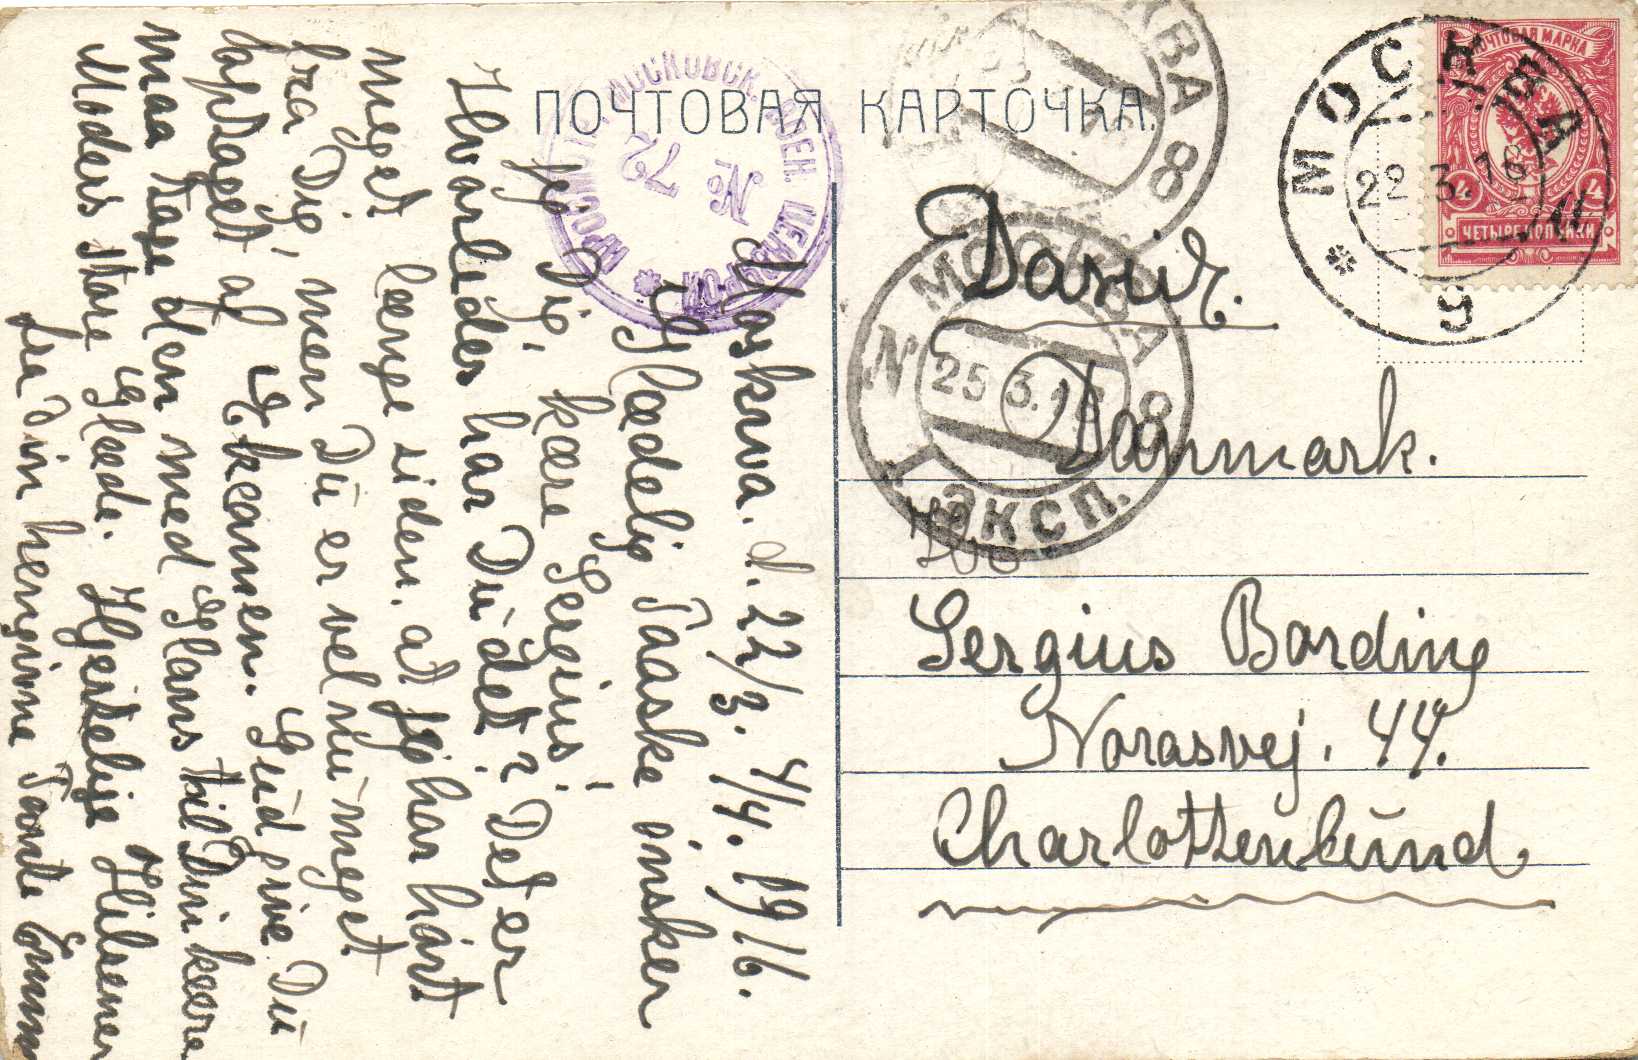 ПОЧТОВАЯ КАРТОЧКА.
Moskwa. d. 22/3. 4/4. 1916.
Glædelig Paaske önsker
jeg Dig, kære Sergius!
Hvorledes har Du det? Det er
meget længe siden, at jeg har hört
fra Dig, men Du er vel nu meget
optaget af Exkamen. Gud give Du
maa tage den med Glans til Din kære
Moders store Glæde. Hjertelige Hilsener
fra Din hengivne Tante Emmy
Danmark.
Sergius Bording
Norasvej. 44.
Charlottenlund.
ПОЧТОВАЯ МАРКА
4 4
ЧЕТЫРЕ КОПѢЙКИ
МОСКВА
22 3 16
9
МОСКВА 8
МОСКВА 8
25 3.16
1 ЭКСП.
МОСКОВСК. ВОЕН. ЦЕНЗУРОЙ
№ 72